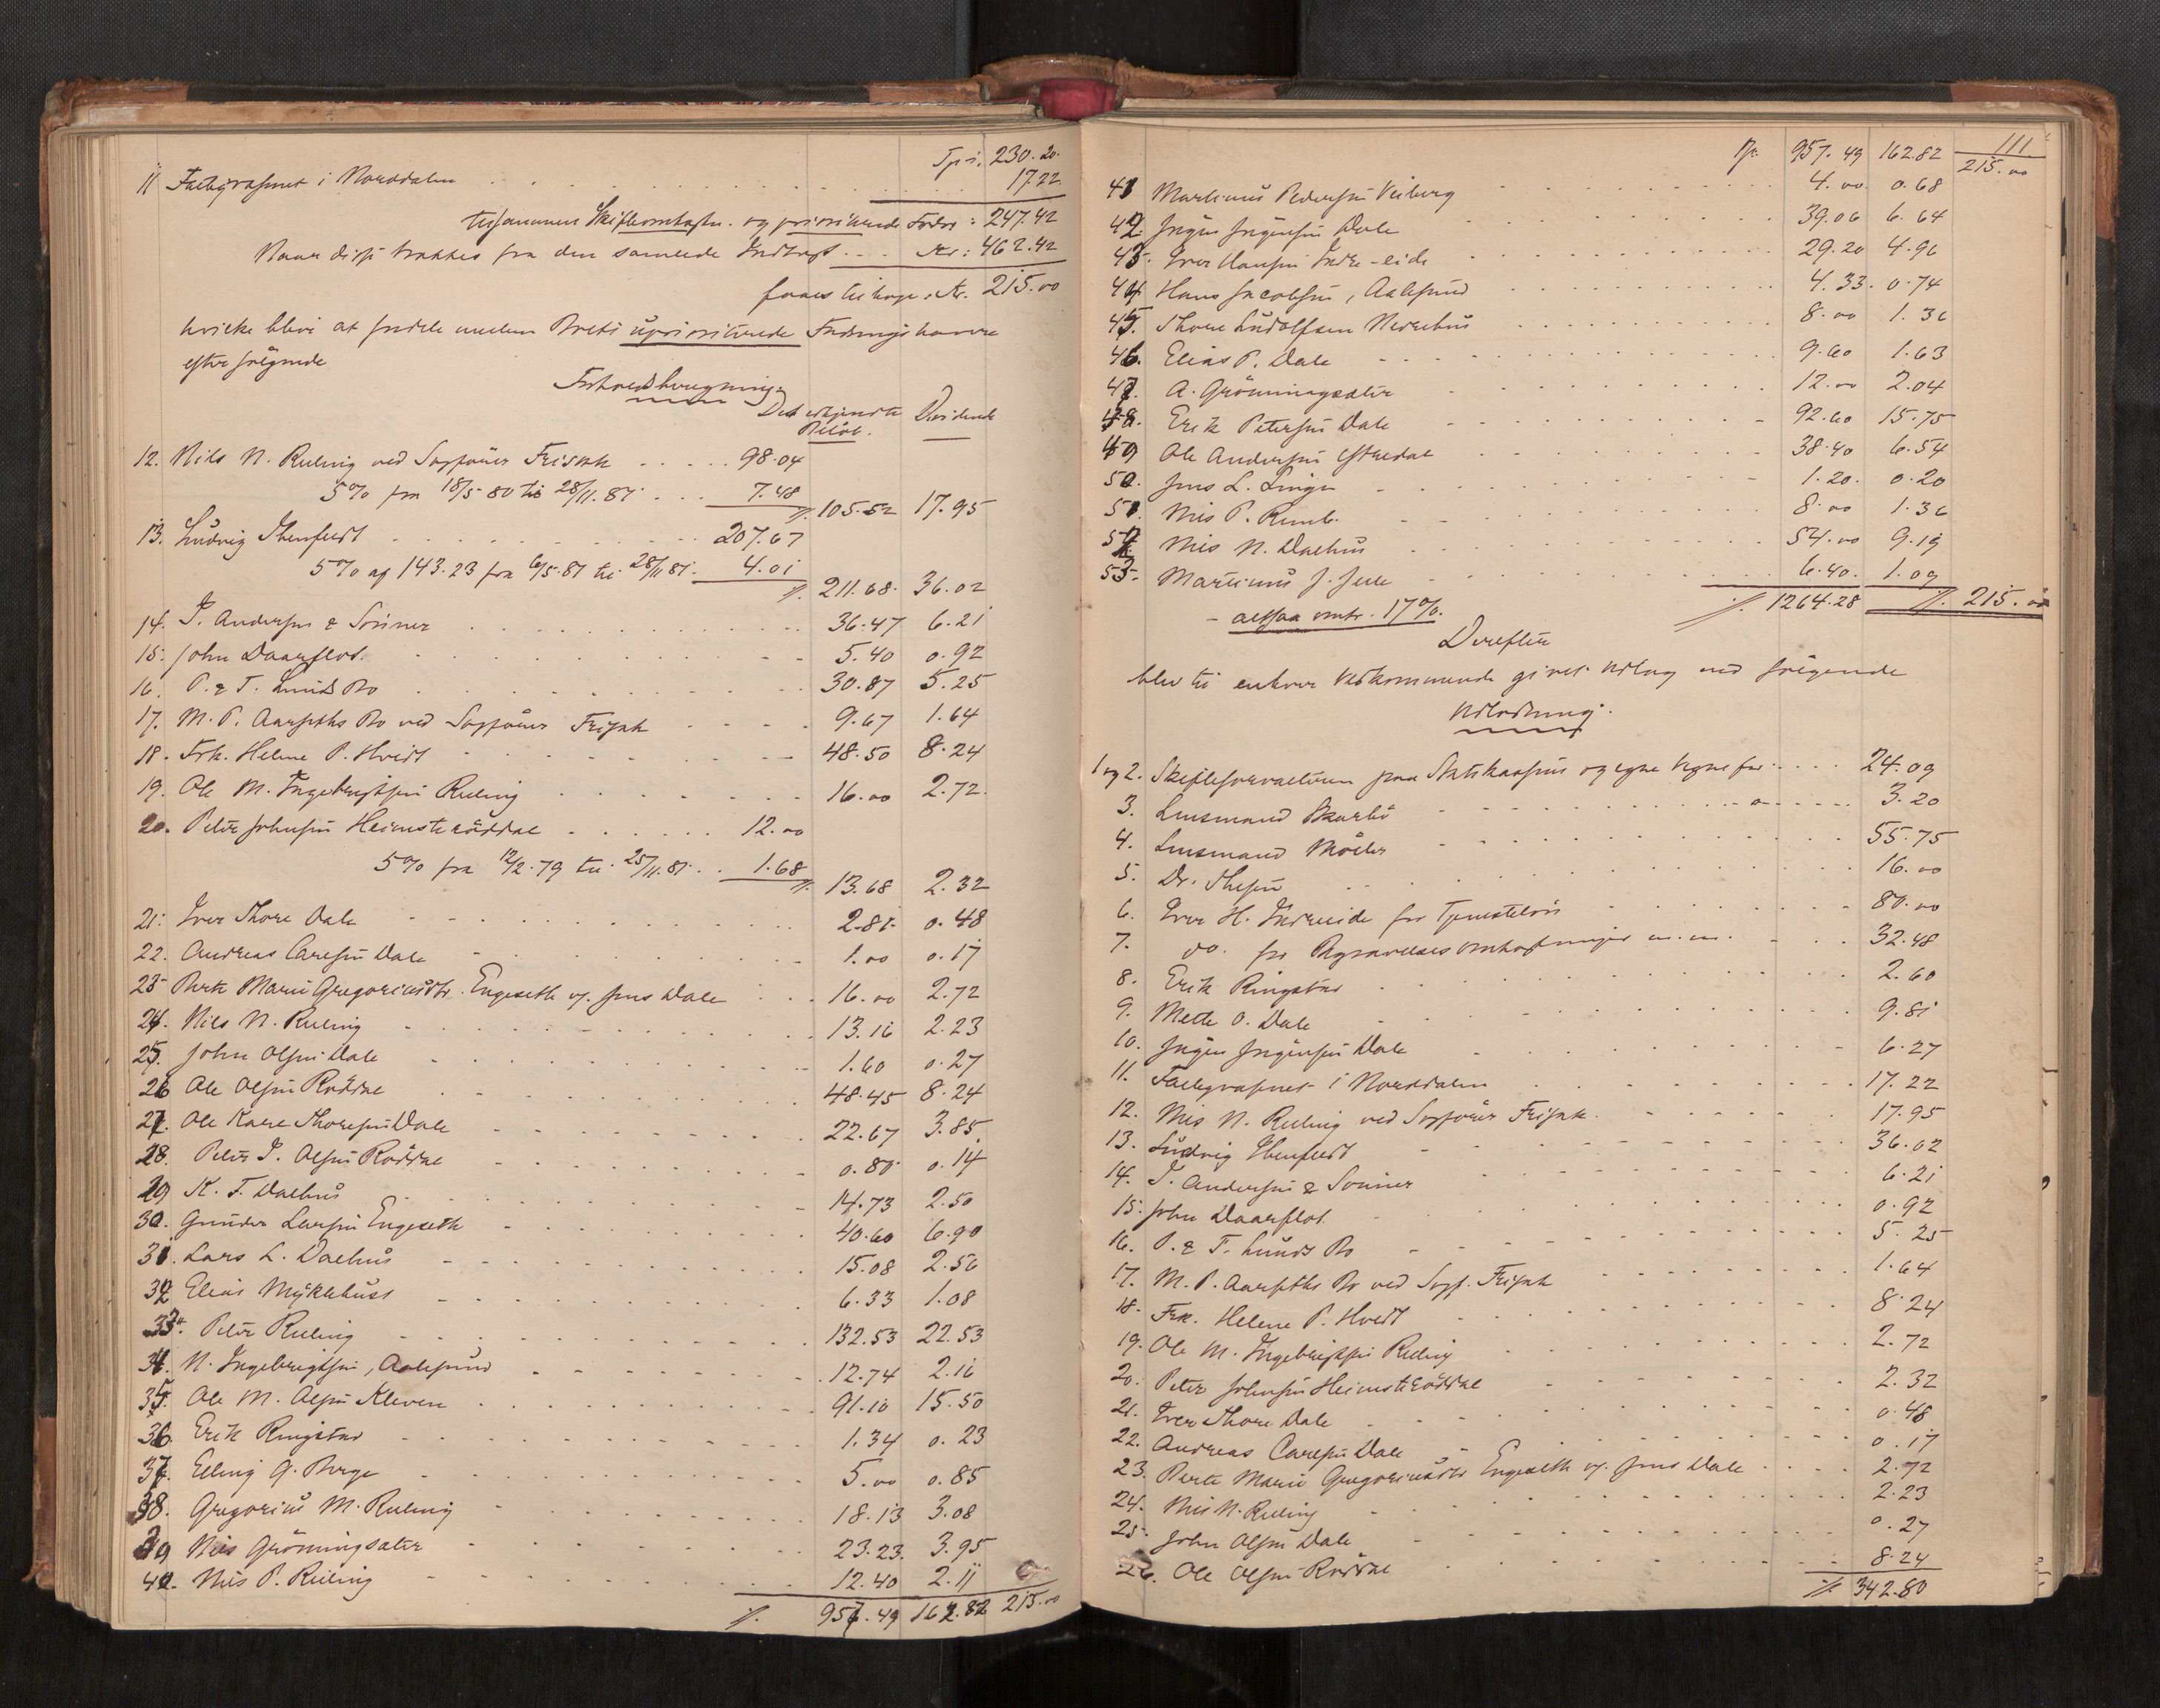 Tp-i. 230.20.
11 Fattigvæsenet i Norddalen . . . 17.22
tilsammen Skifteomkostn. og prioriterede Fordr: 247.42
Naar disse trækkes fra den samlede Indtægt . . . Kr: 462.42
faaes tilbage. Kr. 215.00
hvilke blive at fordele mellem Boets uprioriterede Fordringshavere
efter følgende
Forholdsberegning.
Det erkjendte Beløb. Dividende
12. Nils N. Reling ved Sagfører Frisak . . . 98.04
5% fra 18/5.80 til 28/11.81 . . . 7.48
105.52 17.95
13. Ludvig Ibenfeldt . . . 207.67
5% af 143.23 fra 6/5.81 til 28/11 81. 4.01
211.68. 36.02
14. I. Andersen & Sønner . . . 36.47 6.21
15. John Daarflot. . . . 5.40 0.92
16. P. & T. Lunds Bo . . . 30.87 5.25
17. M. P. Aarseths Bo ved Sagfører Frisak . . . 9.67 1.64
18. Frk. Helene P. Hvidt . . . 48.50 8.24
19. Ole M. Ingebrigtsen Reling . . . 16.00 2.72.
20. Peter Johnsen Heimsteröddal . . . 12.00
5% fra 12/2.79 til 25/11.81. . . 1.68
13.68 2.32
21. Iver Thore Dale . . . 2.81. 0.48
22. Andreas Carlsen Dale . . . 1.00 0.17
23 Berte Marie Gregoriusdtr. Engeseth og Jens Dale . . . 16.00 2.72
24. Nils N. Reling . . . 13.16 2.23
25. John Olsen Dale . . . 1.60 0.27
26 Ole Olsen Röddal . . . 48.45 8.24
27. Ole Karl Thoresen Dale . . . 22.67 3.85.
28. Peter I. Olsen Röddal . . . 0.80. 0.14
29 K. T. Dalhus . . . 14.73 2.50
30. Gunder Larsen Engeseth . . . 40.60 6.90
31. Lars L. Dalhus . . . 15.08 2.56
32 Elias Myklebust . . . 6.33 1.08
33. Peter Reling . . . 132.53 22.53
34. N. Ingebrigtsen, Aalesund . . . 12.74 2.16
35. Ole M. Olsen Kleven . . . 91.16 15.50
36. Erik Ringstad . . . 1.34 0.23
37. Elling G. Berge . . . 5.00 0.85
38. Gregorius M. Reling . . . 18.13 3.08
39 Nils Grönningsæter . . . 23.23. 3.95
40. Nils P. Reling . . . 12.40 2.11
957.49 162.82 215.00
111
957.49 162.82 215.00
41 Martinus Pedersen Veiberg . . . 4.00. 0.68
42. Jørgen Jørgensen Dale . . . 39.06 6.64
43. Iver Hansen Indre-eide . . . 29.20 4.96
44 Hans Jacobsen, Aalesund . . . 4.33. 0.74
45. Thore Ludolfsen Nedrehus . . . 8.00 1.36
46. Elias P. Dale . . . 9.60 1.63
47. A. Grönningsæter . . . 12.00 2.04
48. Erik Petersen Dale . . . 92.60 15.75
49 Ole Andersen Ytredal . . . 38.40 6.54
50. Jens L. Linge . . . 1.20. 0.20
51. Nils P. Remb. . . . 8.00 1.36
52. Nils N. Dalhus . . . 54.00 9.19
53. Martinus J. Jule . . . 6.40. 1.09
1264.28 215.00
- altsaa omtr. 17%.
Derefter
blev til enhver Vedkommende givet Udlæg ved følgende
Udlodning.
1 og 2. Skifteforvalteren paa Statskassens og egne Vegne for . . . 24.09
3. Lensmand Skarbö . . . 3.20
4. Lensmand Möller . . . 55.75
5. Dr. Thesen . . . 16.00
6. Iver H. Indreeide for Tjenesteløn . . . 80.00
7. do. for Begravelsesomkostninger m.m. . . . 32.48
8. Erik Ringstad . . . 2.60
9. Mette O. Dale . . . 9.81
10. Jørgen Jørgensen Dale . . . 6.27
11. Fattigvæsenet i Norddalen . . . 17.22
12. Nils N. Reling ved Sagfører Frisak . . . 17.95
13. Ludvig Ibenfeldt . . . 36.02
14. I. Andersen & Sønner . . . 6.21
15. John Daarflot. . . . 0.92
16. P. & T. Lunds Bo . . . 5.25
17. M. P. Aarseths Bo ved Sagf. Frisak . . . 1.64
18. Frk. Helene P. Hvidt . . . 8.24
19. Ole M. Ingebrigtsen Reling . . . 2.72
20. Peter Johnsen Heimsteröddal . . . 2.32
21. Iver Thore Dale . . . 0.48
22. Andreas Carlsen Dale . . . 0.17
23. Berte Marie Gregoriusdtr Engeseth og Jens Dale . . . 2.72
24. Nils N. Reling . . . 2.23
25. John Olsen Dale . . . 0.27
26. Ole Olsen Röddal . . . 8.24
342.80